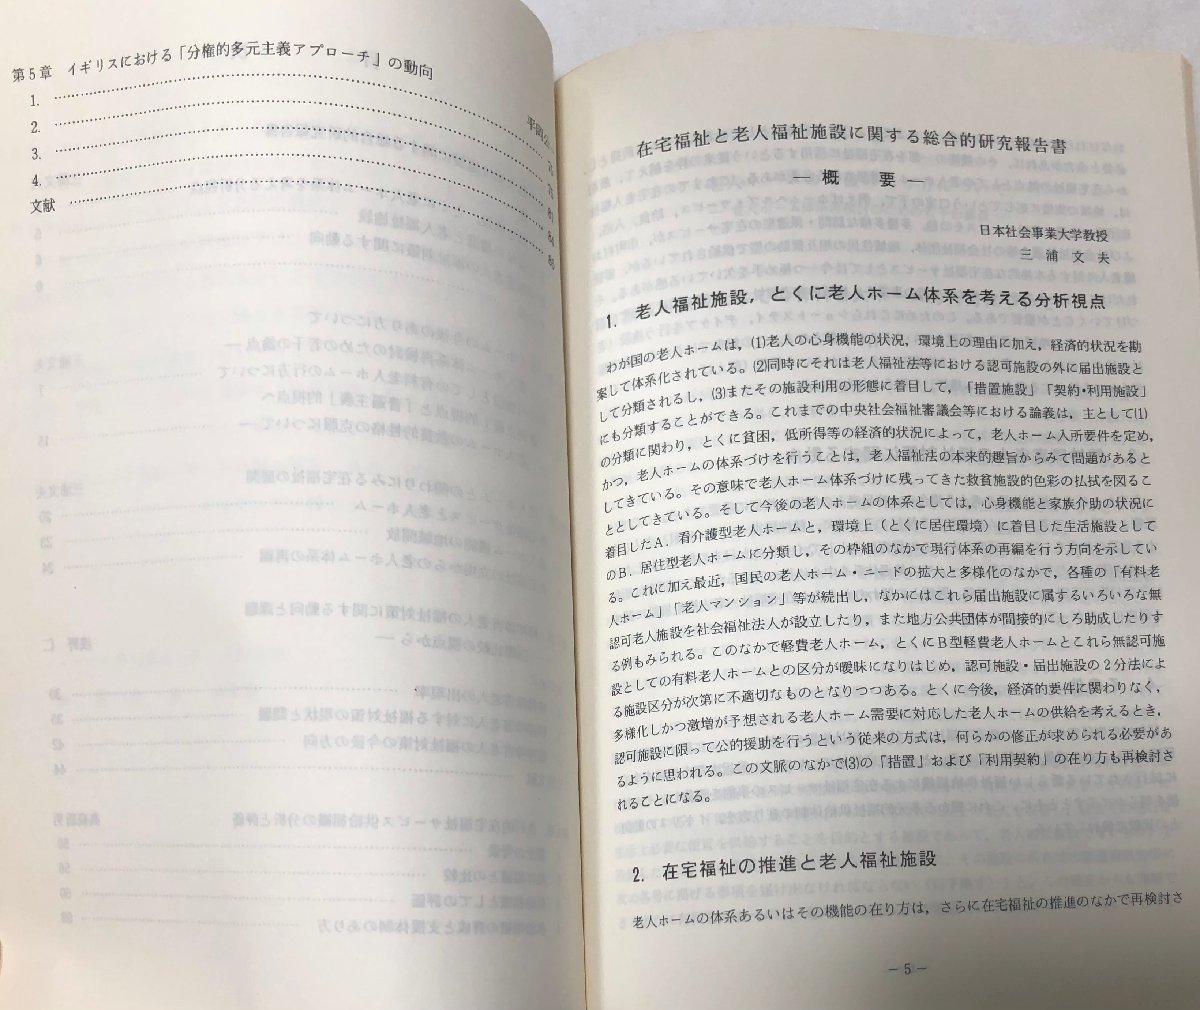 第5章　イギリスにおける「分権的多元主義アプローチ」の動向
平岡公一
1. ……………… 76
2. ……………… 78
3. ……………… 81
4. ……………… 84
文献 ……………… 88
在宅福祉と老人福祉施設に関する総合的研究報告書
― 概　要 ―
日本社会事業大学教授
三　浦　文　夫
1.　老人福祉施設，とくに老人ホーム体系を考える分析視点
わが国の老人ホームは，(1)老人の心身機能の状況，環境上の理由に加え，経済的状況を勘
案して体系化されている。(2)同時にそれは老人福祉法等における認可施設の外に届出施設と
して分類されるし，(3)またその施設利用の形態に着目して，「措置施設」「契約・利用施設」
にも分類することができる。これまでの中央社会福祉審議会等における論義は，主として(1)
の分類に関わり，とくに貧困，低所得等の経済的状況によって，老人ホーム入所要件を定め，
かつ，老人ホームの体系づけを行うことは，老人福祉法の本来的趣旨からみて問題があると
してきている。その意味で老人ホーム体系づけに残ってきた救貧施設的色彩の払拭を図るこ
ととしてきている。そして今後の老人ホームの体系としては，心身機能と家族介助の状況に
着目したＡ．看介護型老人ホームと，環境上（とくに居住環境）に着目した生活施設として
のＢ．居住型老人ホームに分類し，その枠組のなかで現行体系の再編を行う方向を示してい
る。これに加え最近，国民の老人ホーム・ニードの拡大と多様化のなかで，各種の「有料老
人ホーム」「老人マンション」等が続出し，なかにはこれら届出施設に属するいろいろな無
認可老人施設を社会福祉法人が設立したり，また地方公共団体が間接的にしろ助成したりす
る例もみられる。このなかで軽費老人ホーム，とくにＢ型軽費老人ホームとこれら無認可施
設としての有料老人ホームとの区分が曖昧になりはじめ，認可施設・届出施設の２分法によ
る施設区分が次第に不適切なものとなりつつある。とくに今後，経済的要件に関わりなく，
多様化しかつ激増が予想される老人ホーム需要に対応した老人ホームの供給を考えるとき，
認可施設に限って公的援助を行うという従来の方式は，何らかの修正が求められる必要があ
るように思われる。この文脈のなかで(3)の「措置」および「利用契約」の在り方も再検討さ
れることになる。
2.　在宅福祉の推進と老人福祉施設
老人ホームの体系あるいはその機能の在り方は，さらに在宅福祉の推進のなかで再検討さ
― 5 ―